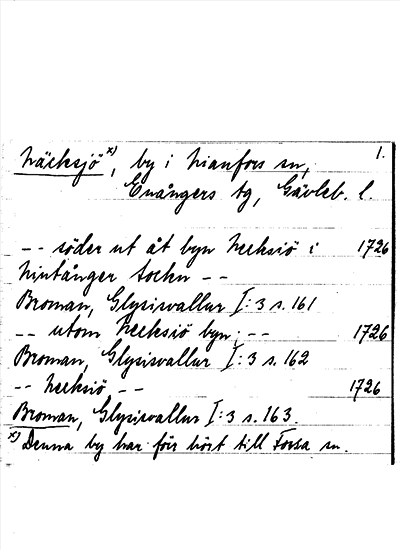 1.
Näcksjö x), by i Nianfors sn,
Enångers tg, Gävleb. l.
-- söder ut åt byn Necksiö i 1726
Nintånger sockn --
Broman, Glysisvallur I:3 s. 161
-- utom Necksiö byn; -- 1726
Broman, Glysisvallur I:3 s. 162
-- Necksiö -- 1726
Broman, Glysisvallur I:3 s. 163.
x) Denna by har förr hört till Forsa sn.